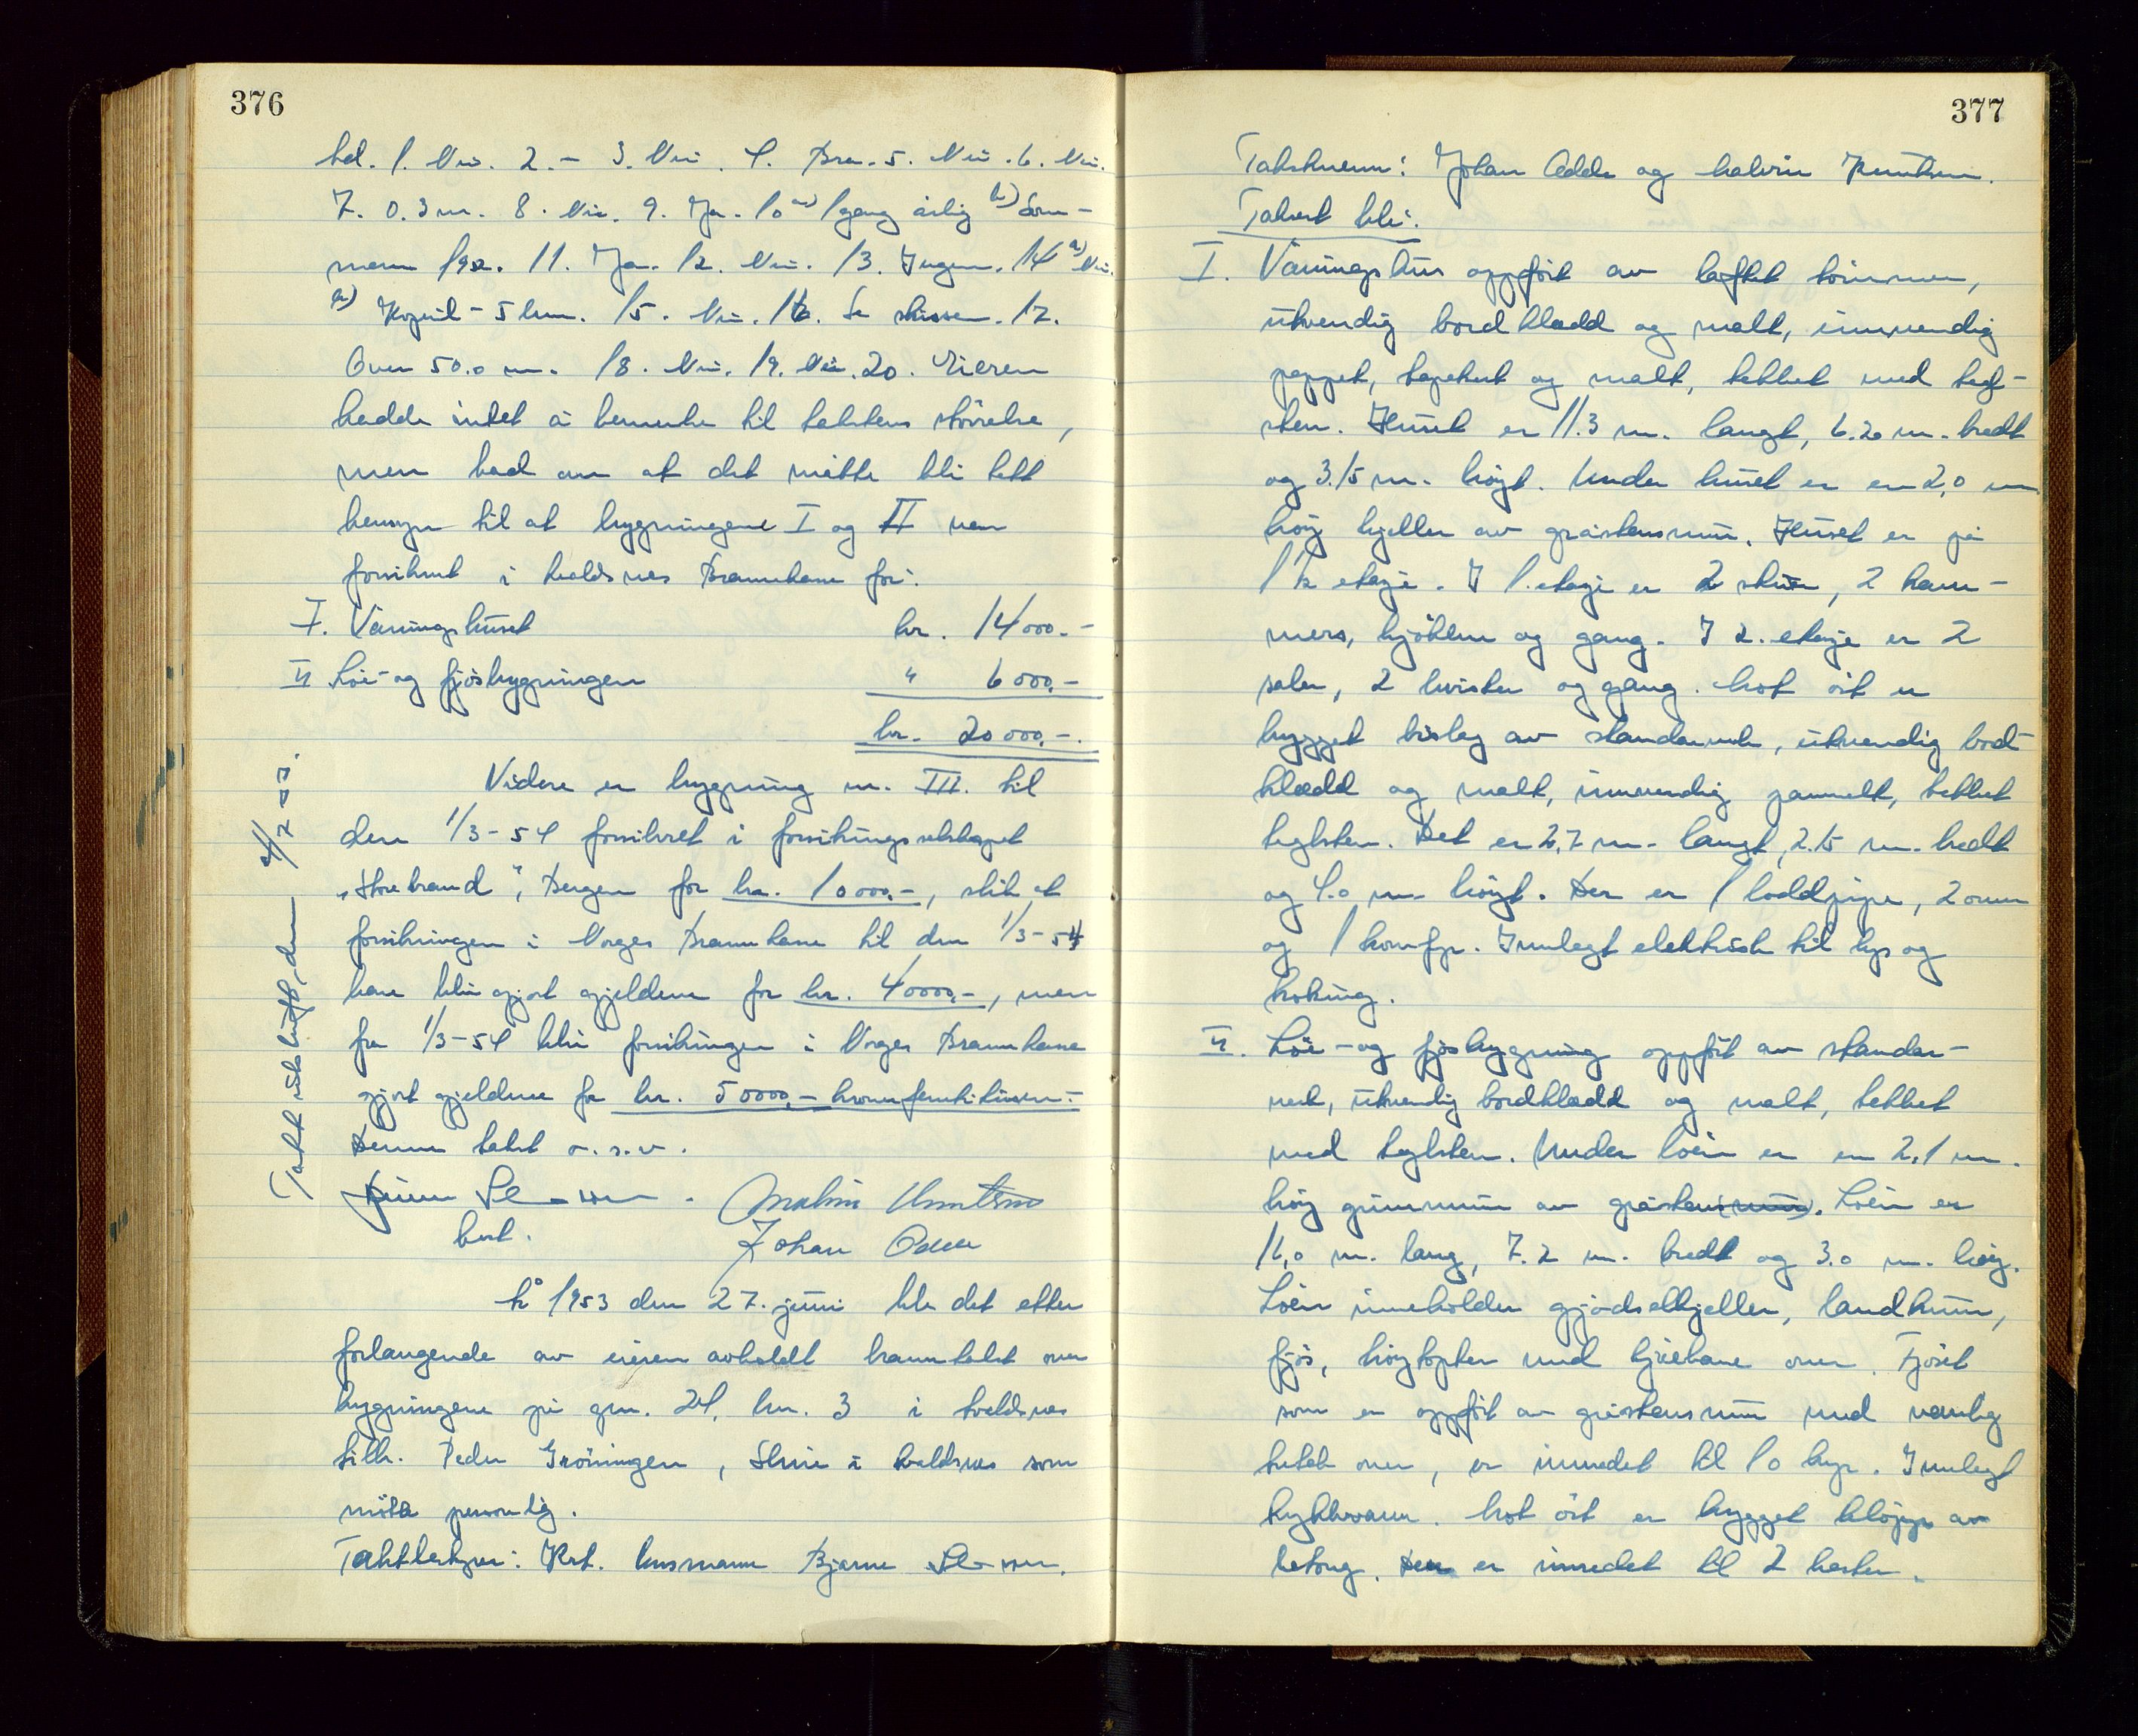 376
bel. 1. Nei. 2. - 3. Nei. 4. Bra. 5. Nei. 6. Nei.
7. 0.3 m. 8. Nei. 9. Ja. 10 a) 1 gang årlig b) Som-
meren 1952. 11. Ja. 12. Nei. 13. Ingen. 14 a) Nei.
b) - 5 km. 15. Nei. 16. Se skissen. 17.
Over 50.0 m. 18. Nei. 19. Nei. 20. Eieren
hadde intet å bemerke til takstens størrelse,
men bad om at det måtte bli tatt
hensyn til at bygningene I og II var
forsikret i Haldsnes Brannkasse for:
I. Våningshuset kr. 14000.-
II Løe- og fjøsbygningen " 6000,-
kr. 20000,-.
Videre er bygning nr. III. til
den 1/3-54 forsikret i forsikringsselskapet
"Storebrand", Bergen for kr. 10000,-, slik at
forsikringen i Norges Brannkasse til den 1/3-54
kan bli gjort gjeldene for kr. 40000,-, men
fra 1/3-54 blir forsikringen i Norges Brannkasse
gjort gjeldene for kr. 50000,- kronerfemtitusen-
Denne takst o.s.v.
Malvin Knutsen
best. Johan Odde
År 1953 den 27. juni ble det etter
forlangende av eieren avholdt branntakst over
bygningene på gnr. 24, bnr. 3 i
tilh. Peder Gröningen, i som
møtte personlig.
Takstbestyrer: Rep. lensmann Bjarne
Takst utskrift, den 4/2-55.
377
Takstmenn: Johan Odde og Malvin Knutsen.
Takst ble:
I. Våningshus oppført av laftet tømmer,
utvendig bordkledd og malt, innvendig
pappet, tapetsert og malt, tekket med tegl-
sten. Huset er 11.3 m. langt, 6.20 m. bredt
og 3.15 m. høyt. Under huset er en 2,0 m
høy kjeller av gråstensmur. Huset er på
1 1/2 etasje. I 1. etasje er 2 stuer, 2 kam-
mers, kjøkken og gang. I 2. etasje er 2
saler, 2 kvister og gang. Mot øst er
bygget bislag av standerverk, utvendig bord
kledd og malt, innvendig panelt, tekket
teglsten. Det er 2,7 m. langt, 2.15 m. bredt
og 4.0 m. høyt. Der er 1 loddpipe, 2 ovner
og 1 komfyr. Innlagt elektrisk til lys og
koking.
II. Løe- og fjøsbygning oppført av stander-
verk, utvendig bordkledd og malt, tekket
med teglsten. Under løen er en 2,1 m.
høy grunnmur av gråstens(mur). Løen er
16,0 m. lang, 7.2 m. bredt og 3.0 m. høy.
Løen inneholder gjødselkjeller, landkum,
fjøs, høytopter med kjørebane over. Fjøset
som er oppført av gråstensmur med vanlig
tretak over, er innredet til 10 kyr. Innlagt
trykkvann. Mot øst er bygget tilbygg av
betong. Den er innredet til 2 hester.